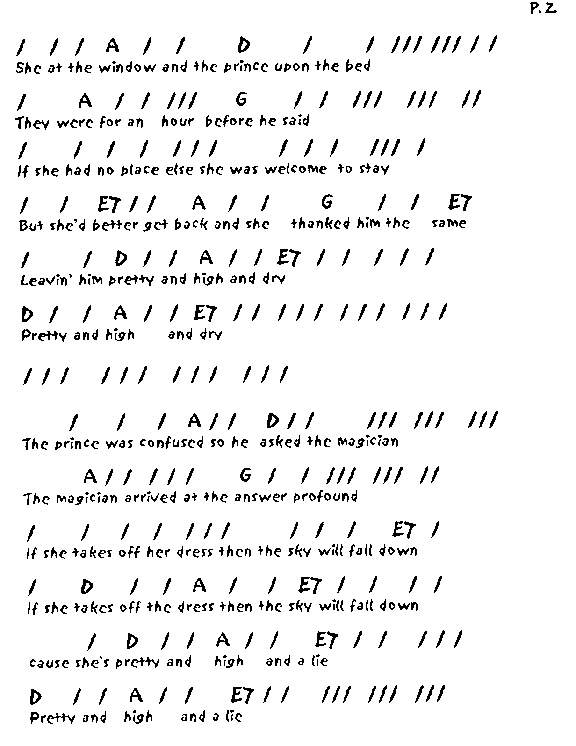 P.2
/ / / / A / / D / / /// /// / /
She at the window and the prince upon the bed
/ A / / /// G / / /// /// //
They were for an hour before he said
/ / / / / / / / / / /// /
If she had no place else she was welcome to stay
/ / E7 / / A / / G / / E7
But she'd better get back and she thanked him the same
/ / D / / A / / E7 / / / / /
Leavin' him pretty and high and dry
D / / A / / E7 / / /// /// ///
Pretty and high and dry
/// /// /// ///
/ / / A / / D / / /// /// ///
The prince was confused so he asked the magician
A / / /// G / / /// /// //
The magician arrived at the answer profound
/ / / / /// / / / E7 /
If she takes off her dress then the sky will fall down
/ D / / A / / E7 / / / /
If she takes off the dress then the sky will fall down
/ D / / A / / E7 / / ///
cause she's pretty and high and a lie
D / / A / / E7 / / /// /// ///
Pretty and high and a lie